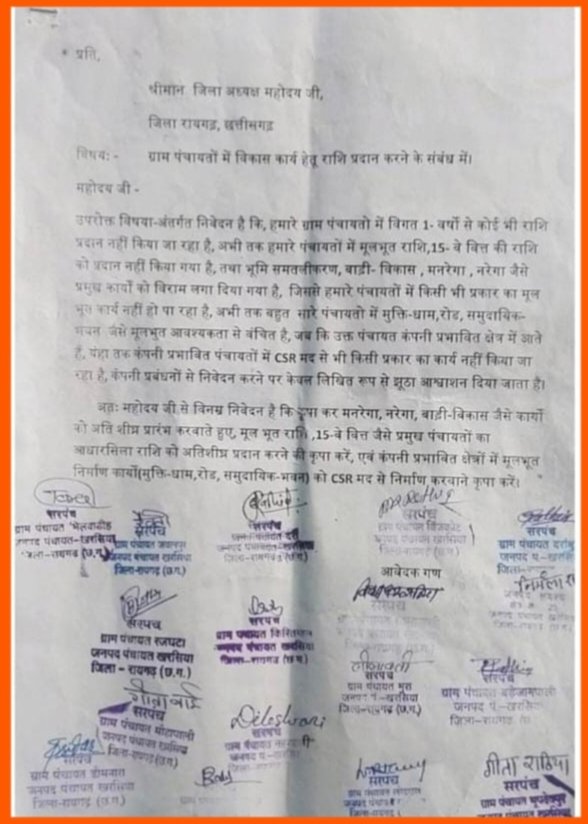 प्रति,
श्रीमान जिला अध्यक्ष महोदय जी,
जिला रायगढ़, छत्तीसगढ़
विषय: - ग्राम पंचायतों में विकास कार्य हेतु राशि प्रदान करने के संबंध में।
महोदय जी -
उपरोक्त विषया-अंतर्गत निवेदन है कि, हमारे ग्राम पंचायतो में विगत 1- वर्षो से कोई भी राशि
प्रदान नहीं किया जा रहा है, अभी तक हमारे पंचायतों में मूलभूत राशि,15- वे वित्त की राशि
को प्रदान नहीं किया गया है, तथा भूमि समतलीकरण, बाड़ी- विकास , मनरेगा , नरेगा जैसे
प्रमुख कार्यो को विराम लगा दिया गया है, जिससे हमारे पंचायतों में किसी भी प्रकार का मूल
भूत कार्य नहीं हो पा रहा है, अभी तक बहुत सारे पंचायतो में मुक्ति-धाम,रोड, समुदायिक-
भवन जैसे मूलभुत आवश्यकता से वंचित है, जब कि उक्त पंचायत कंपनी प्रभावित क्षेत्र में आते
हैं, यहा तक कंपनी प्रभावित पंचायतों में CSR मद से भी किसी प्रकार का कार्य नहीं किया जा
रहा है, कंपनी प्रबंधनों से निवेदन करने पर केवल लिखित रूप से झूठा आश्वाशन दिया जाता है।
अतः महोदय जी से विनम्र निवेदन है कि कृपा कर मनरेगा, नरेगा, बाड़ी-विकास जैसे कार्यों
को अति शीघ्र प्रारंभ करवाते हुए, मूल भूत राशि ,15-वे वित्त जैसे प्रमुख पंचायतों का
आधारसिला राशि को अतिशीघ्र प्रदान करने की कृपा करें, एवं कंपनी प्रभावित क्षेत्रों में मूलभूत
निर्माण कार्यो(मुक्ति-धाम,रोड, समुदायिक-भवन) को CSR मद से निर्माण करवाने कृपा करें।
सरपंच
ग्राम पंचायत
जनपद पंचायत-खरसिया
जिला-रायगढ़ (छ.ग.)
सरपंच
ग्राम पंचायत
जनपद पंचायत खरसिया
जिला-रायगढ़ (छ.ग.)
सरपंच
जिला-रायगढ़ (छ.ग.)
सरपंच
सरपंच
ग्राम पंचायत
जनपद प.-खरसिया
आवेदक गण
निर्मला
सरपंच
ग्राम पंचायत रजघटा
जनपद पंचायत खरसिया
जिला - रायगढ़ (छ.ग.)
सरपंच
ग्राम पंचायत
जनपद पंचायत खरसिया
जिला-रायगढ़ (छ.ग.)
सरपंच
लीलावती
सरपंच
ग्राम पंचायत
जनपद प.-खरसिया
जिला-रायगढ़ (छ.ग.)
सरपंच
ग्राम पंचायत
जनपद प.-खरसिया
गीता बाई
सरपंच
ग्राम पंचायत
जनपद पंचायत खरसिया
जिला-रायगढ़ (छ.ग.)
Dileshwari
सरपंच
सरपंच
ग्राम पंचायत डोमनारा
जनपद पंचायत खरसिया
जिला-रायगढ़ (छ.ग.)
सरपंच
गीता राठिया
सरपंच
ग्राम पंचायत